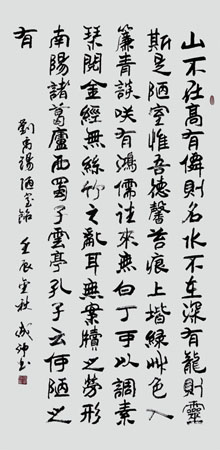 山不在高有僊則名水不在深有龍則靈
斯是陋室惟吾德馨苔痕上堦緑艸色入
簾青談咲有鴻儒往來無白丁可以調素
琴閱金經無絲竹之亂耳無案牘之勞形
南陽諸葛廬西蜀子雲亭孔子云何陋之
有
劉禹錫陋室銘 壬辰金秋 書